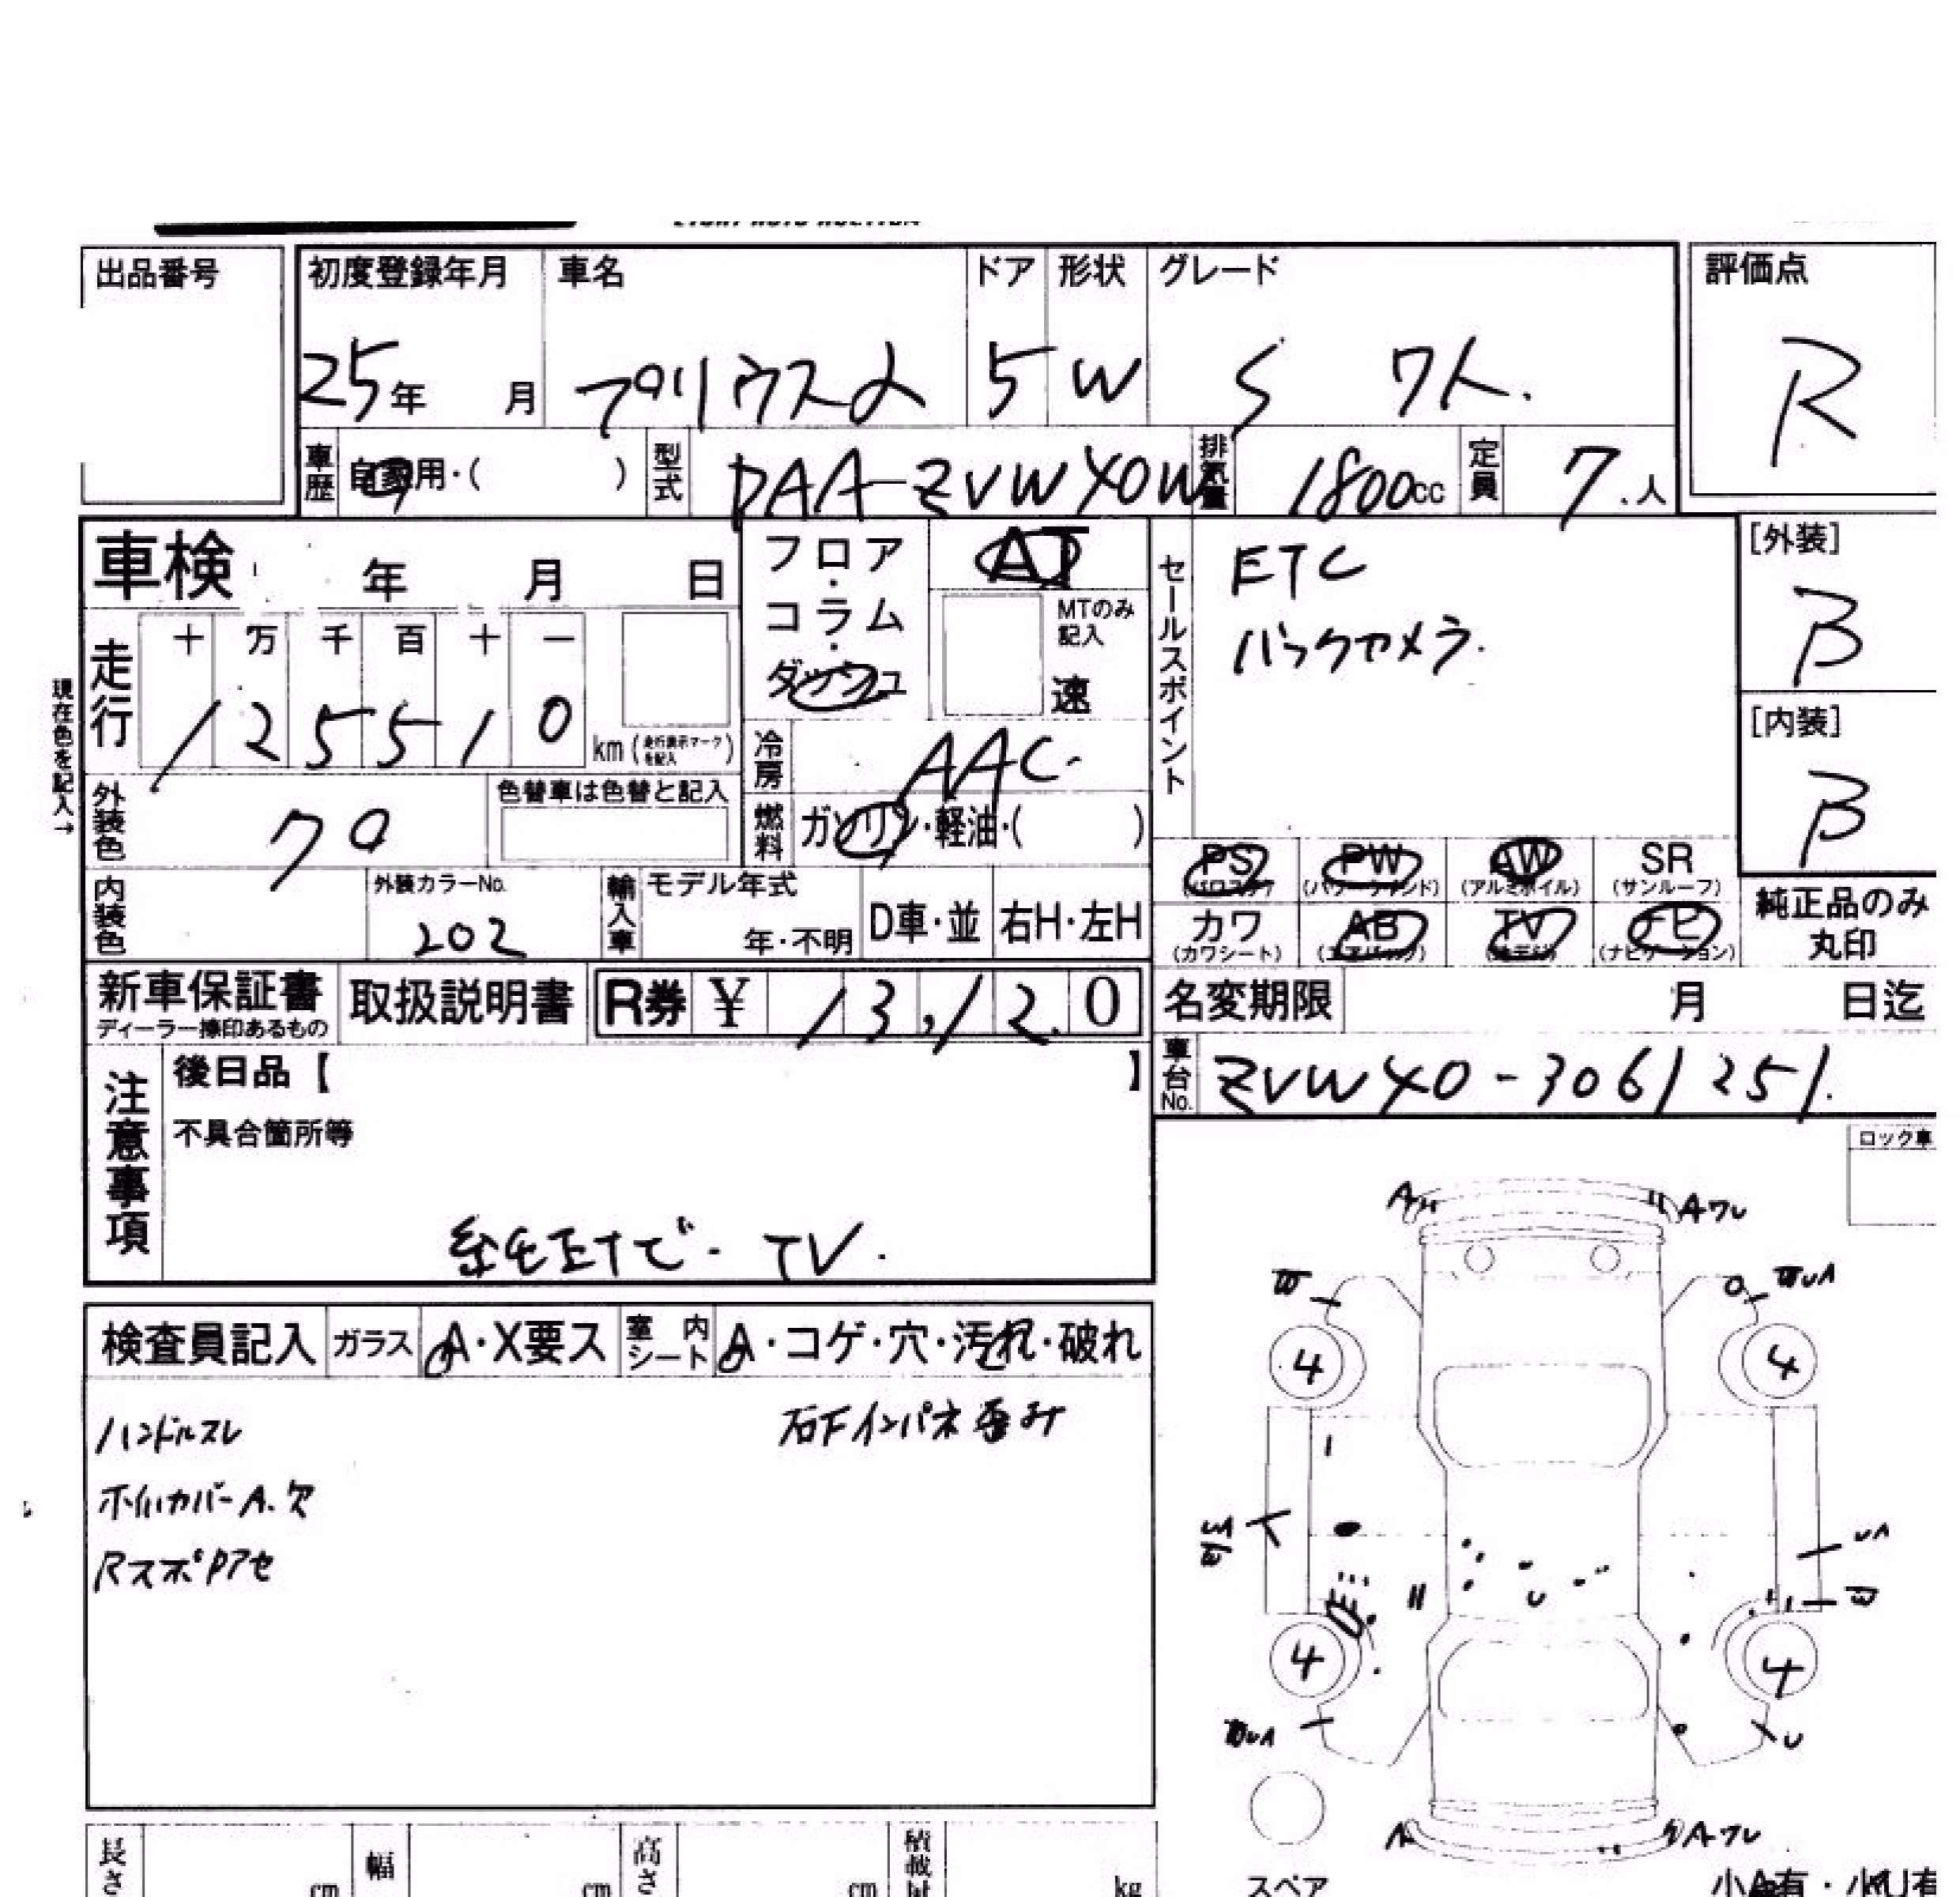 出品番号
初度登録年月 車名 ドア 形状 グレード 評価点
25年 月 プリウスα 5 W S 7人. R
車歴 自家用・( ) 型式 DAA-ZVW40W 排気量 1800cc 定員 7.人
車検 年 月 日
フロア・コラム・ダッシュ
AT
MTのみ記入
速
セールスポイント
ETC
バックカメラ.
[外装]
B
[内装]
B
現在色を記入→
走行 十 万 千 百 十 一
1 2 5 5 1 0 km (走行表示マークを記入)
冷房 AAC.
外装色 クロ 色替車は色替と記入
燃料 ガソリン・軽油・( )
内装色 外装カラーNo. 202
輸入車 モデル年式 年・不明 D車・並 右H・左H
PS (パワステ) PW (パワーウインド) AW (アルミホイル) SR (サンルーフ)
カワ (カワシート) AB (エアバッグ) TV ナビ (ナビゲーション)
純正品のみ丸印
新車保証書 ディーラー捺印あるもの 取扱説明書 R券 ¥ 13,120
名変期限 月 日迄
車台No. ZVW40-3061251.
注意事項
後日品【 】
不具合箇所等
純正ナビ. TV.
ロック車
検査員記入 ガラス A・X要ス 室内シート A・コゲ・穴・汚れ・破れ
ハンドルスレ
ホイルカバーA.欠
RスポPアセ
右Fインパネ歪み
A
Aワレ
W
WUA
4
4
UA
W
4
4
U
A
Aワレ
スペア
長さ cm 幅 cm 高さ cm kg